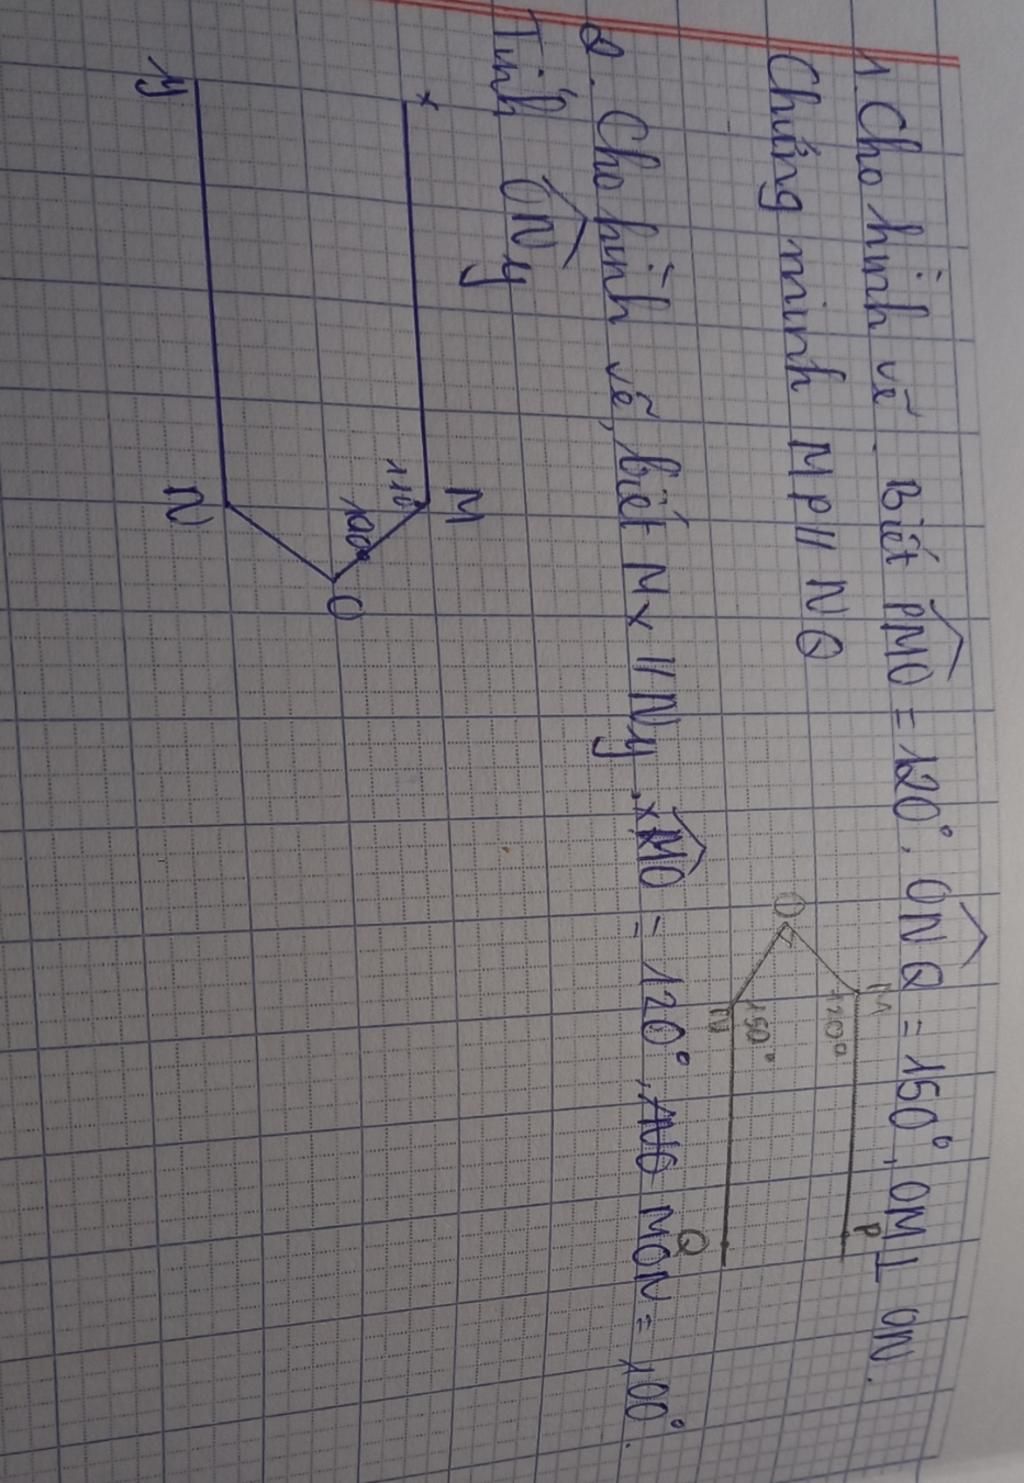 1. Cho hình vẽ. Biết PMO = 120°. ONQ = 150°, OM ⊥ ON.
Chứng minh MP // NQ
M
P
120°
O
150°
N
Q
2. Cho hình vẽ, biết Mx // Ny, xMO = 120°, MON = 100°.
Tính ONy
x
M
110
100°
O
y
N